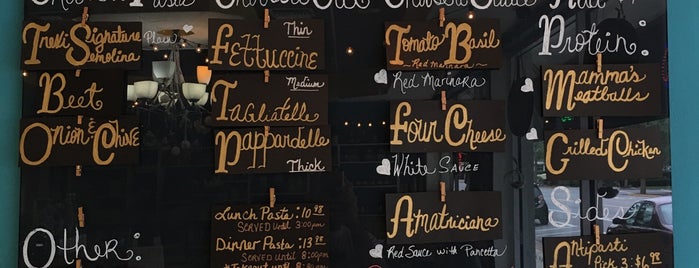 Pasta
Sauce
Protein:
Trevi Signature
Semolina
Plain
Beet
Onion & Chive
Thin
Fettuccine
Medium
Tagliatelle
Pappardelle
Thick
Tomato Basil
~ Red Marinara ~
Red Marinara
Four Cheese
White Sauce
Amatriciana
Red Sauce with Pancetta
Mamma's
Meatballs
Grilled Chicken
Sides
Antipasti
Pick 3 - $6.98
Lunch Pasta: 10.98
Served Until 3:00pm
Dinner Pasta: 13.98
Served Until 8:00pm
Other: